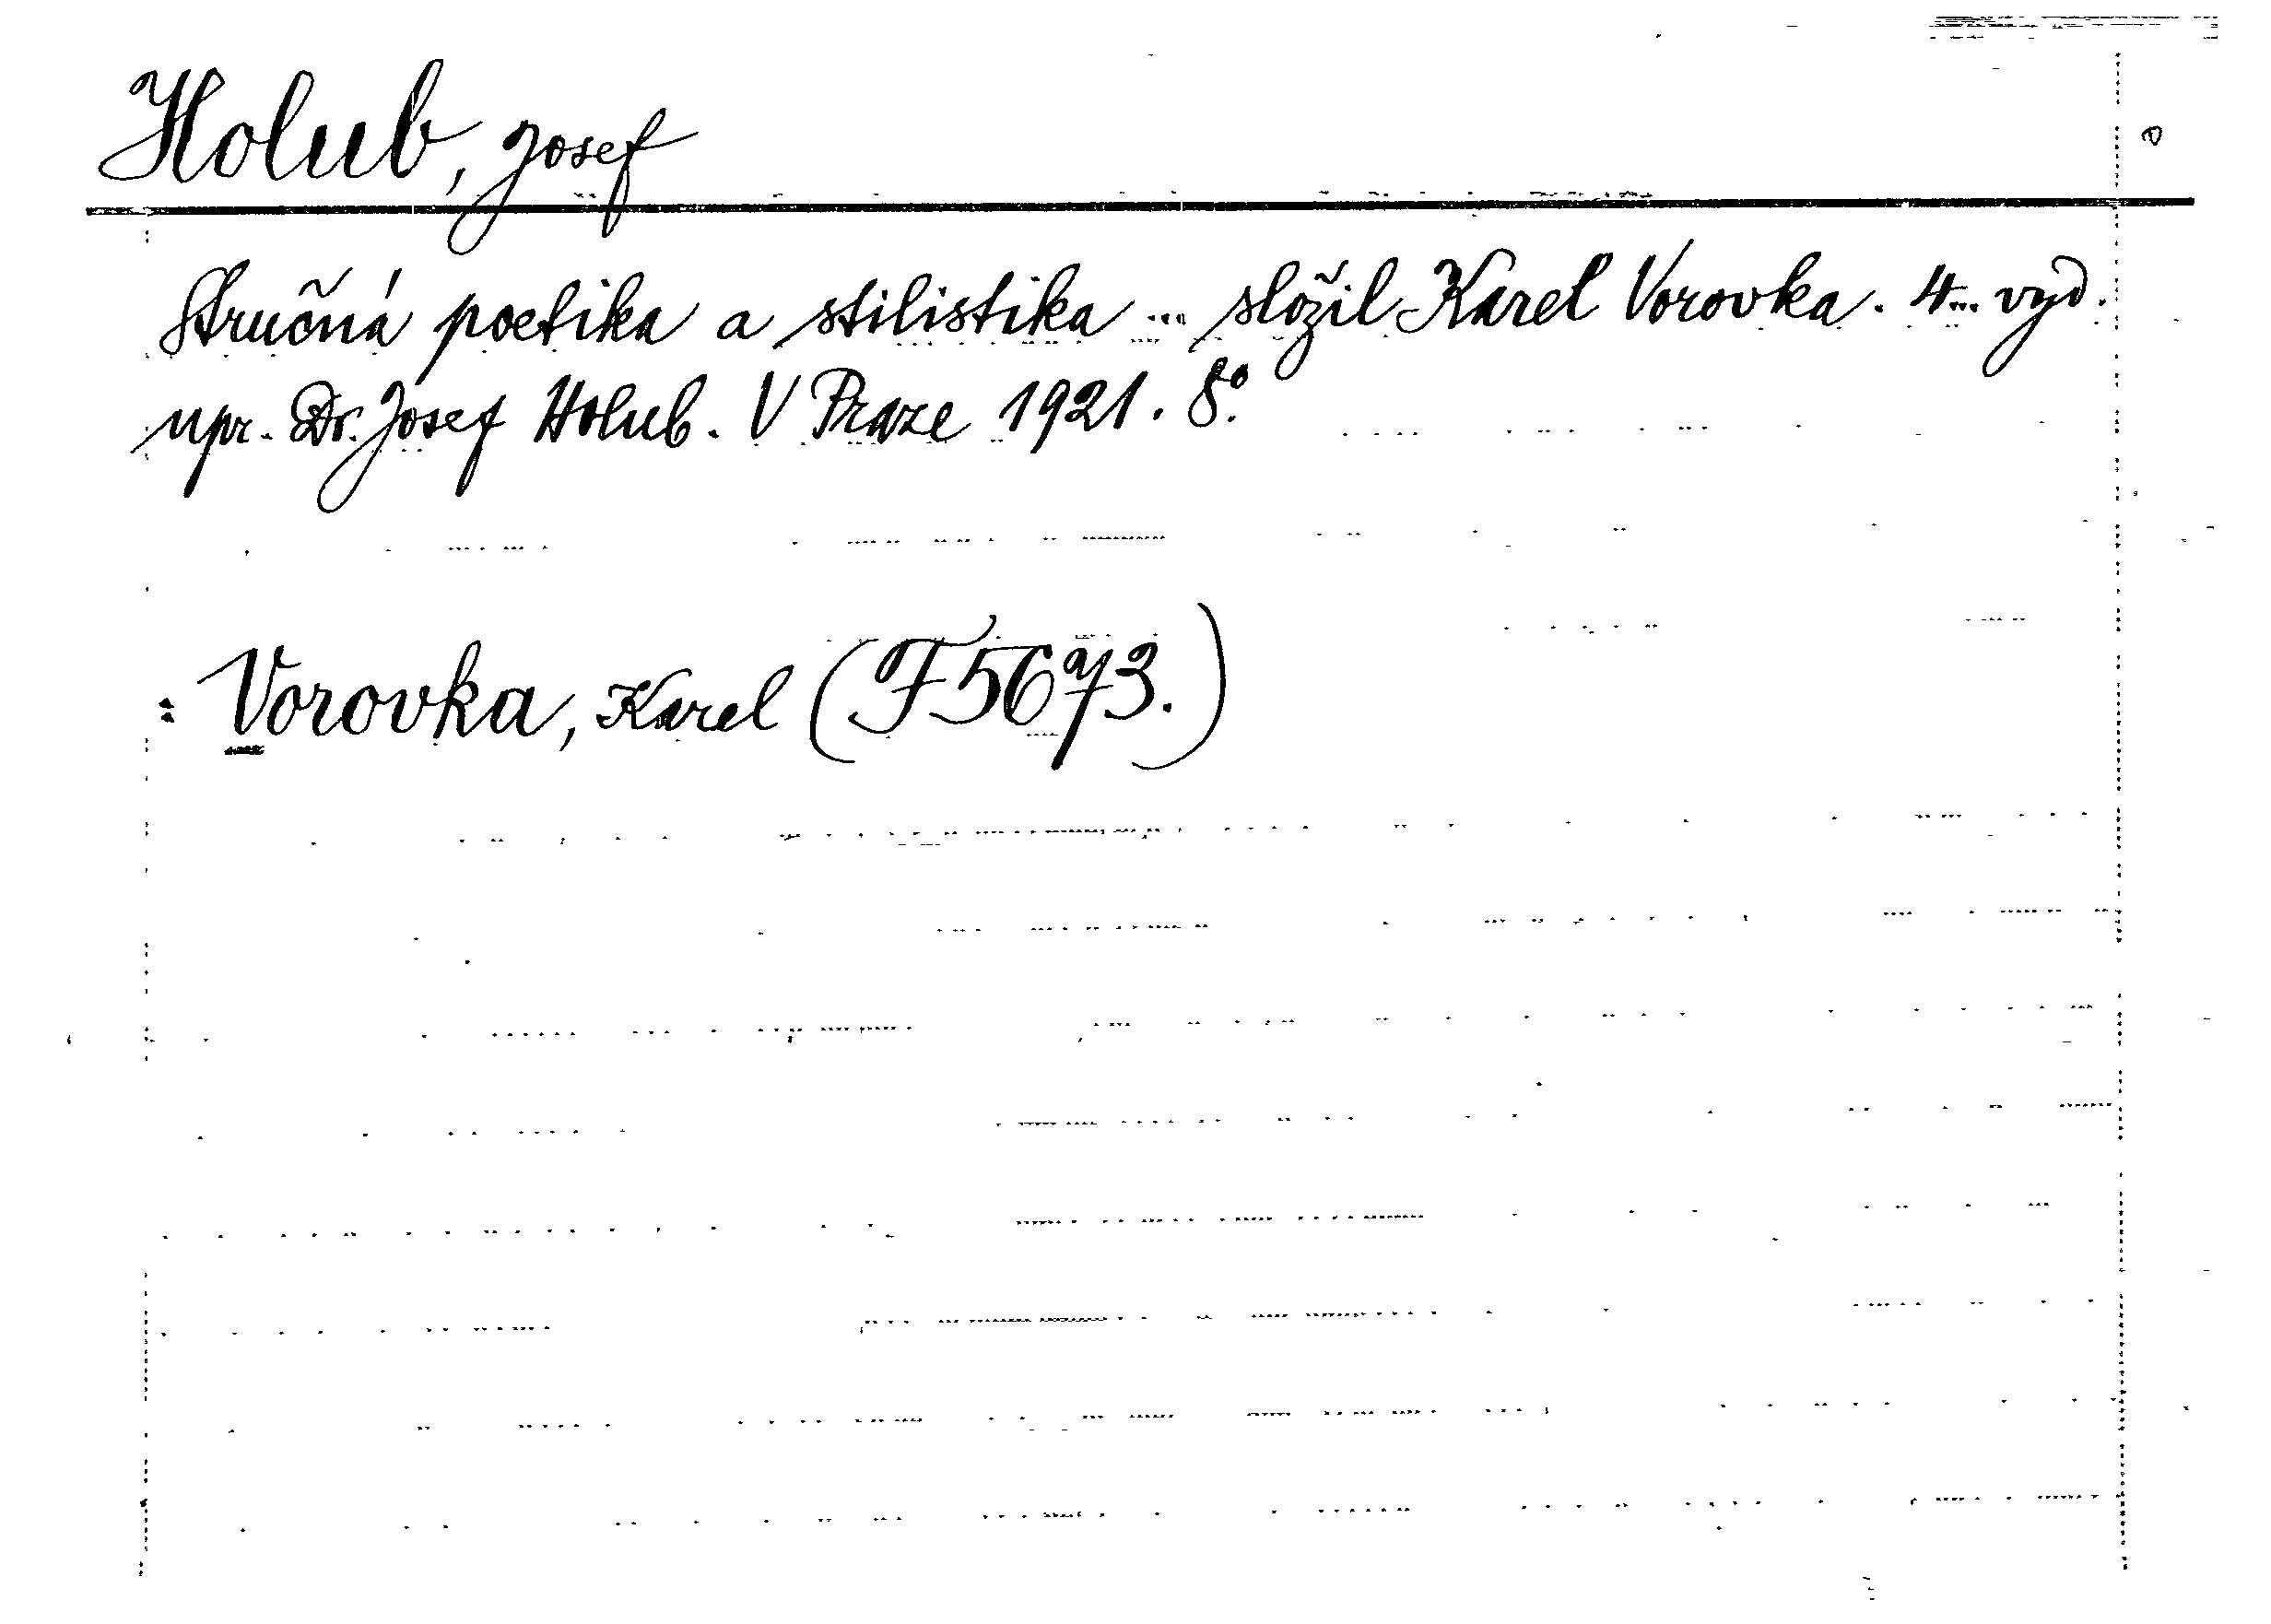 Holub, Josef
Stručná poetika a stilistika ... složil Karel Vorovka. 4... vyd.
upr. Dr. Josef Holub. V Praze 1921. 8°.
: Vorovka, Karel (F 5673.)